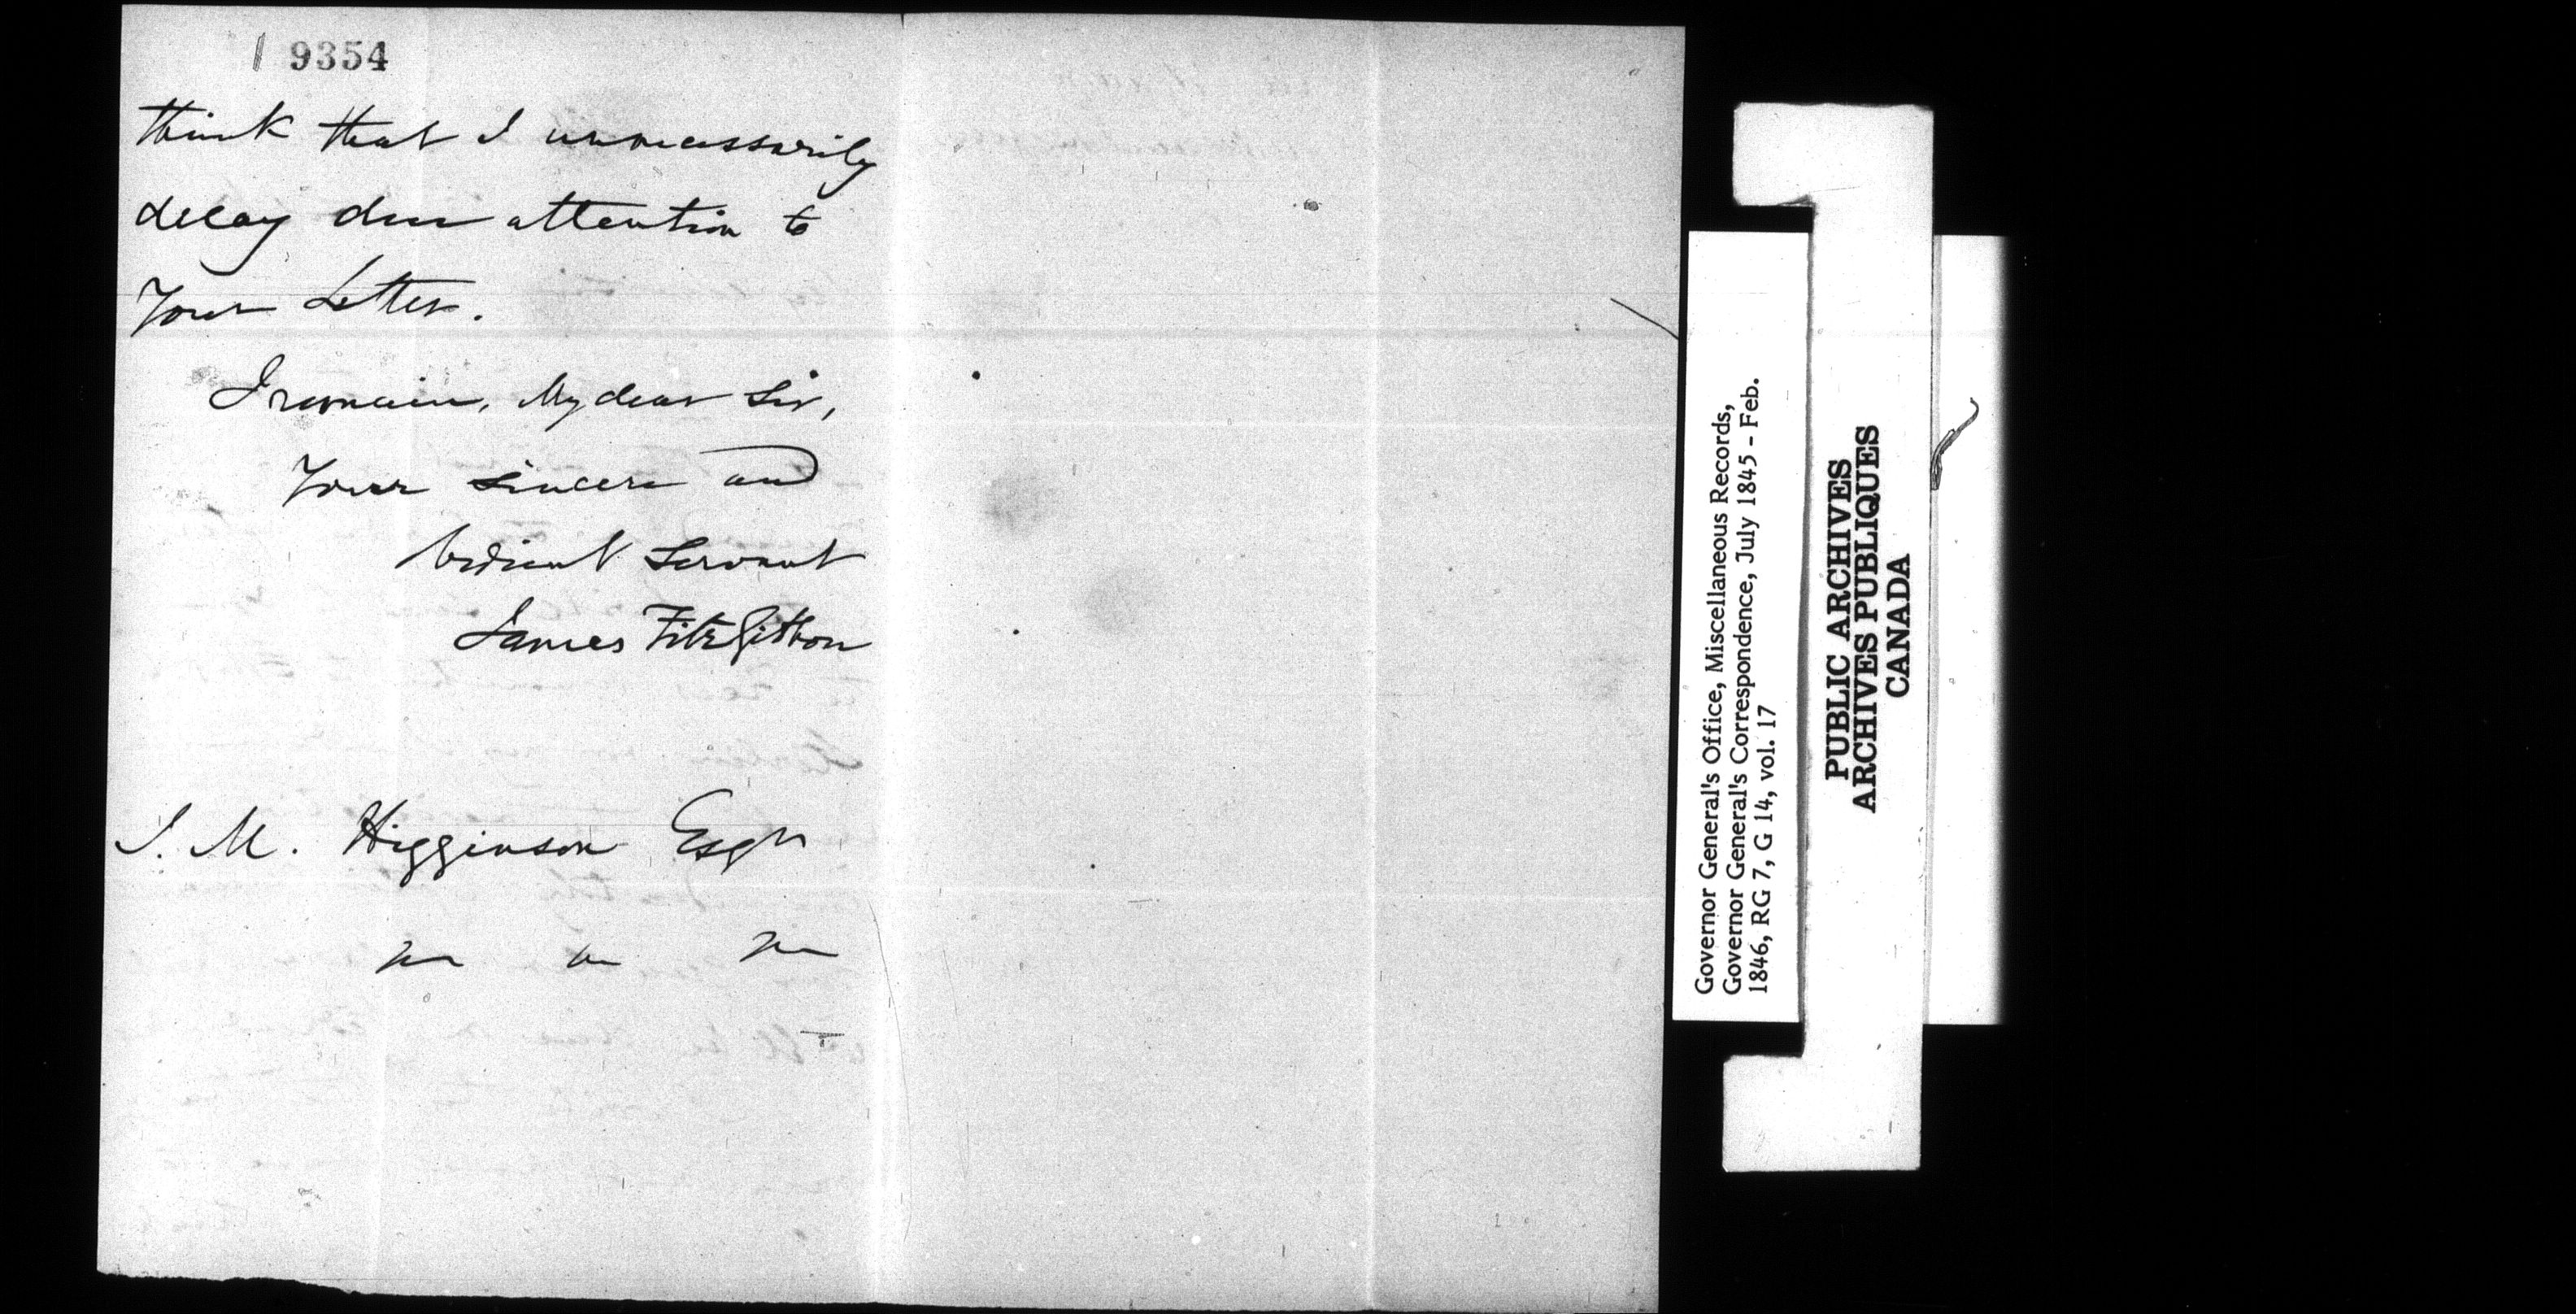 9354
think that I unnecessarily
delay due attention to
Your Letter.
I remain, My dear Sir,
Your sincere and
obedient Servant
James FitzGibbon
J. M. Higginson Esqr
Governor General's Office, Miscellaneous Records,
Governor General's Correspondence, July 1845 - Feb.
1846, RG 7, G 14, vol. 17
PUBLIC ARCHIVES
ARCHIVES PUBLIQUES
CANADA